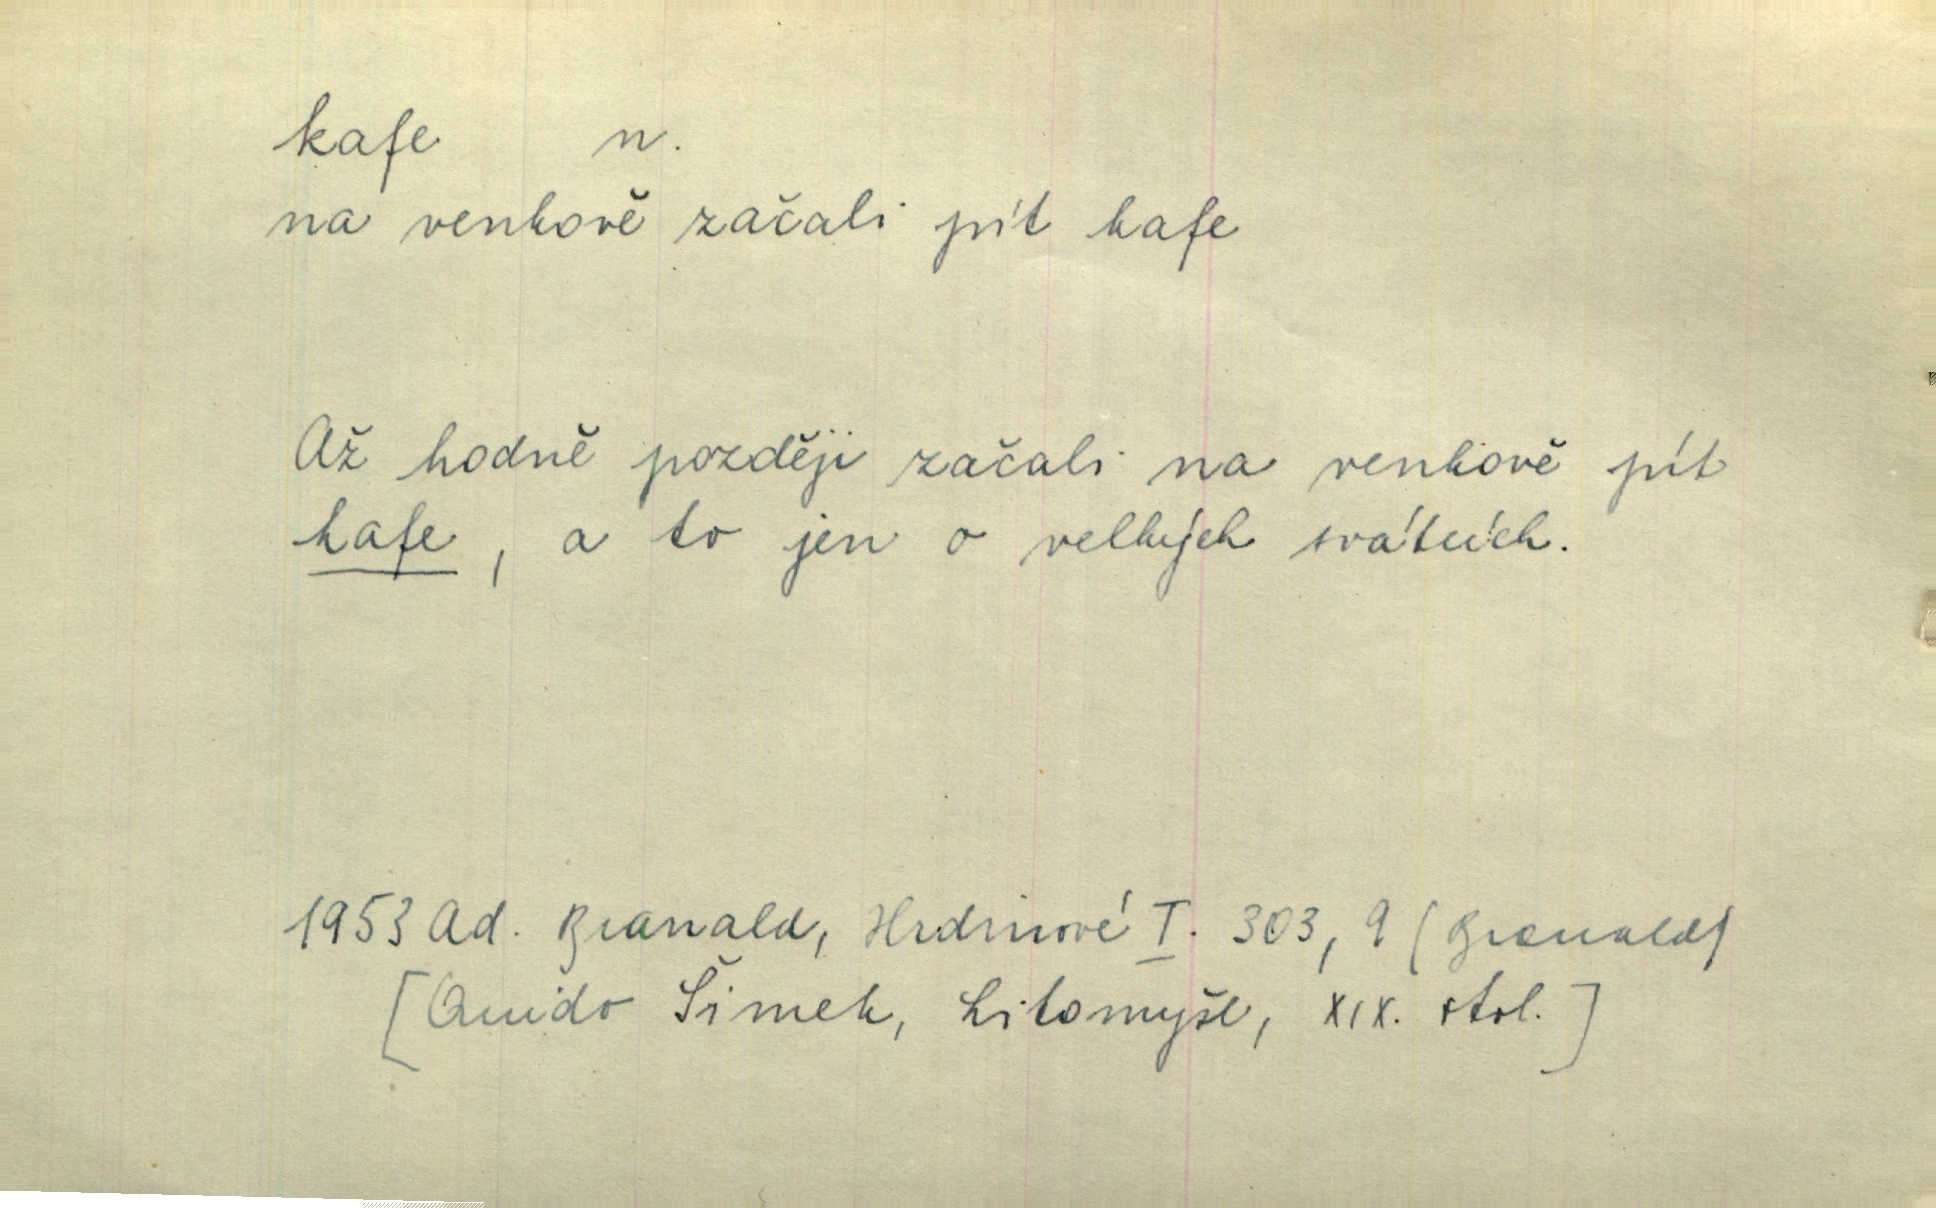 kafe n.
na venkově začali pít kafe
Až hodně později začali na venkově pít
kafe, a to jen o velkých svátcích.
1953 Ad. Branald, Hrdinové I. 303, 9 (Branald)
[Quido Šimek, Litomyšl, XIX. stol.]